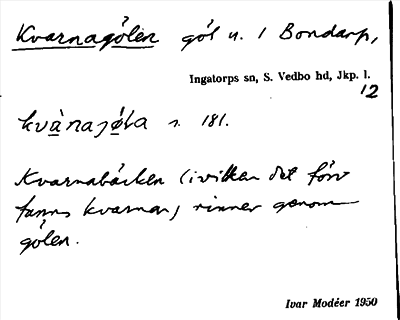 Kvarnagölen göl n. i Bondarp,
Ingatorps sn, S. Vedbo hd, Jkp. l.
12
s. 181.
Kvarnabäcken (i vilken det förr
fanns kvarnar) rinner genom
gölen.
Ivar Modéer 1950